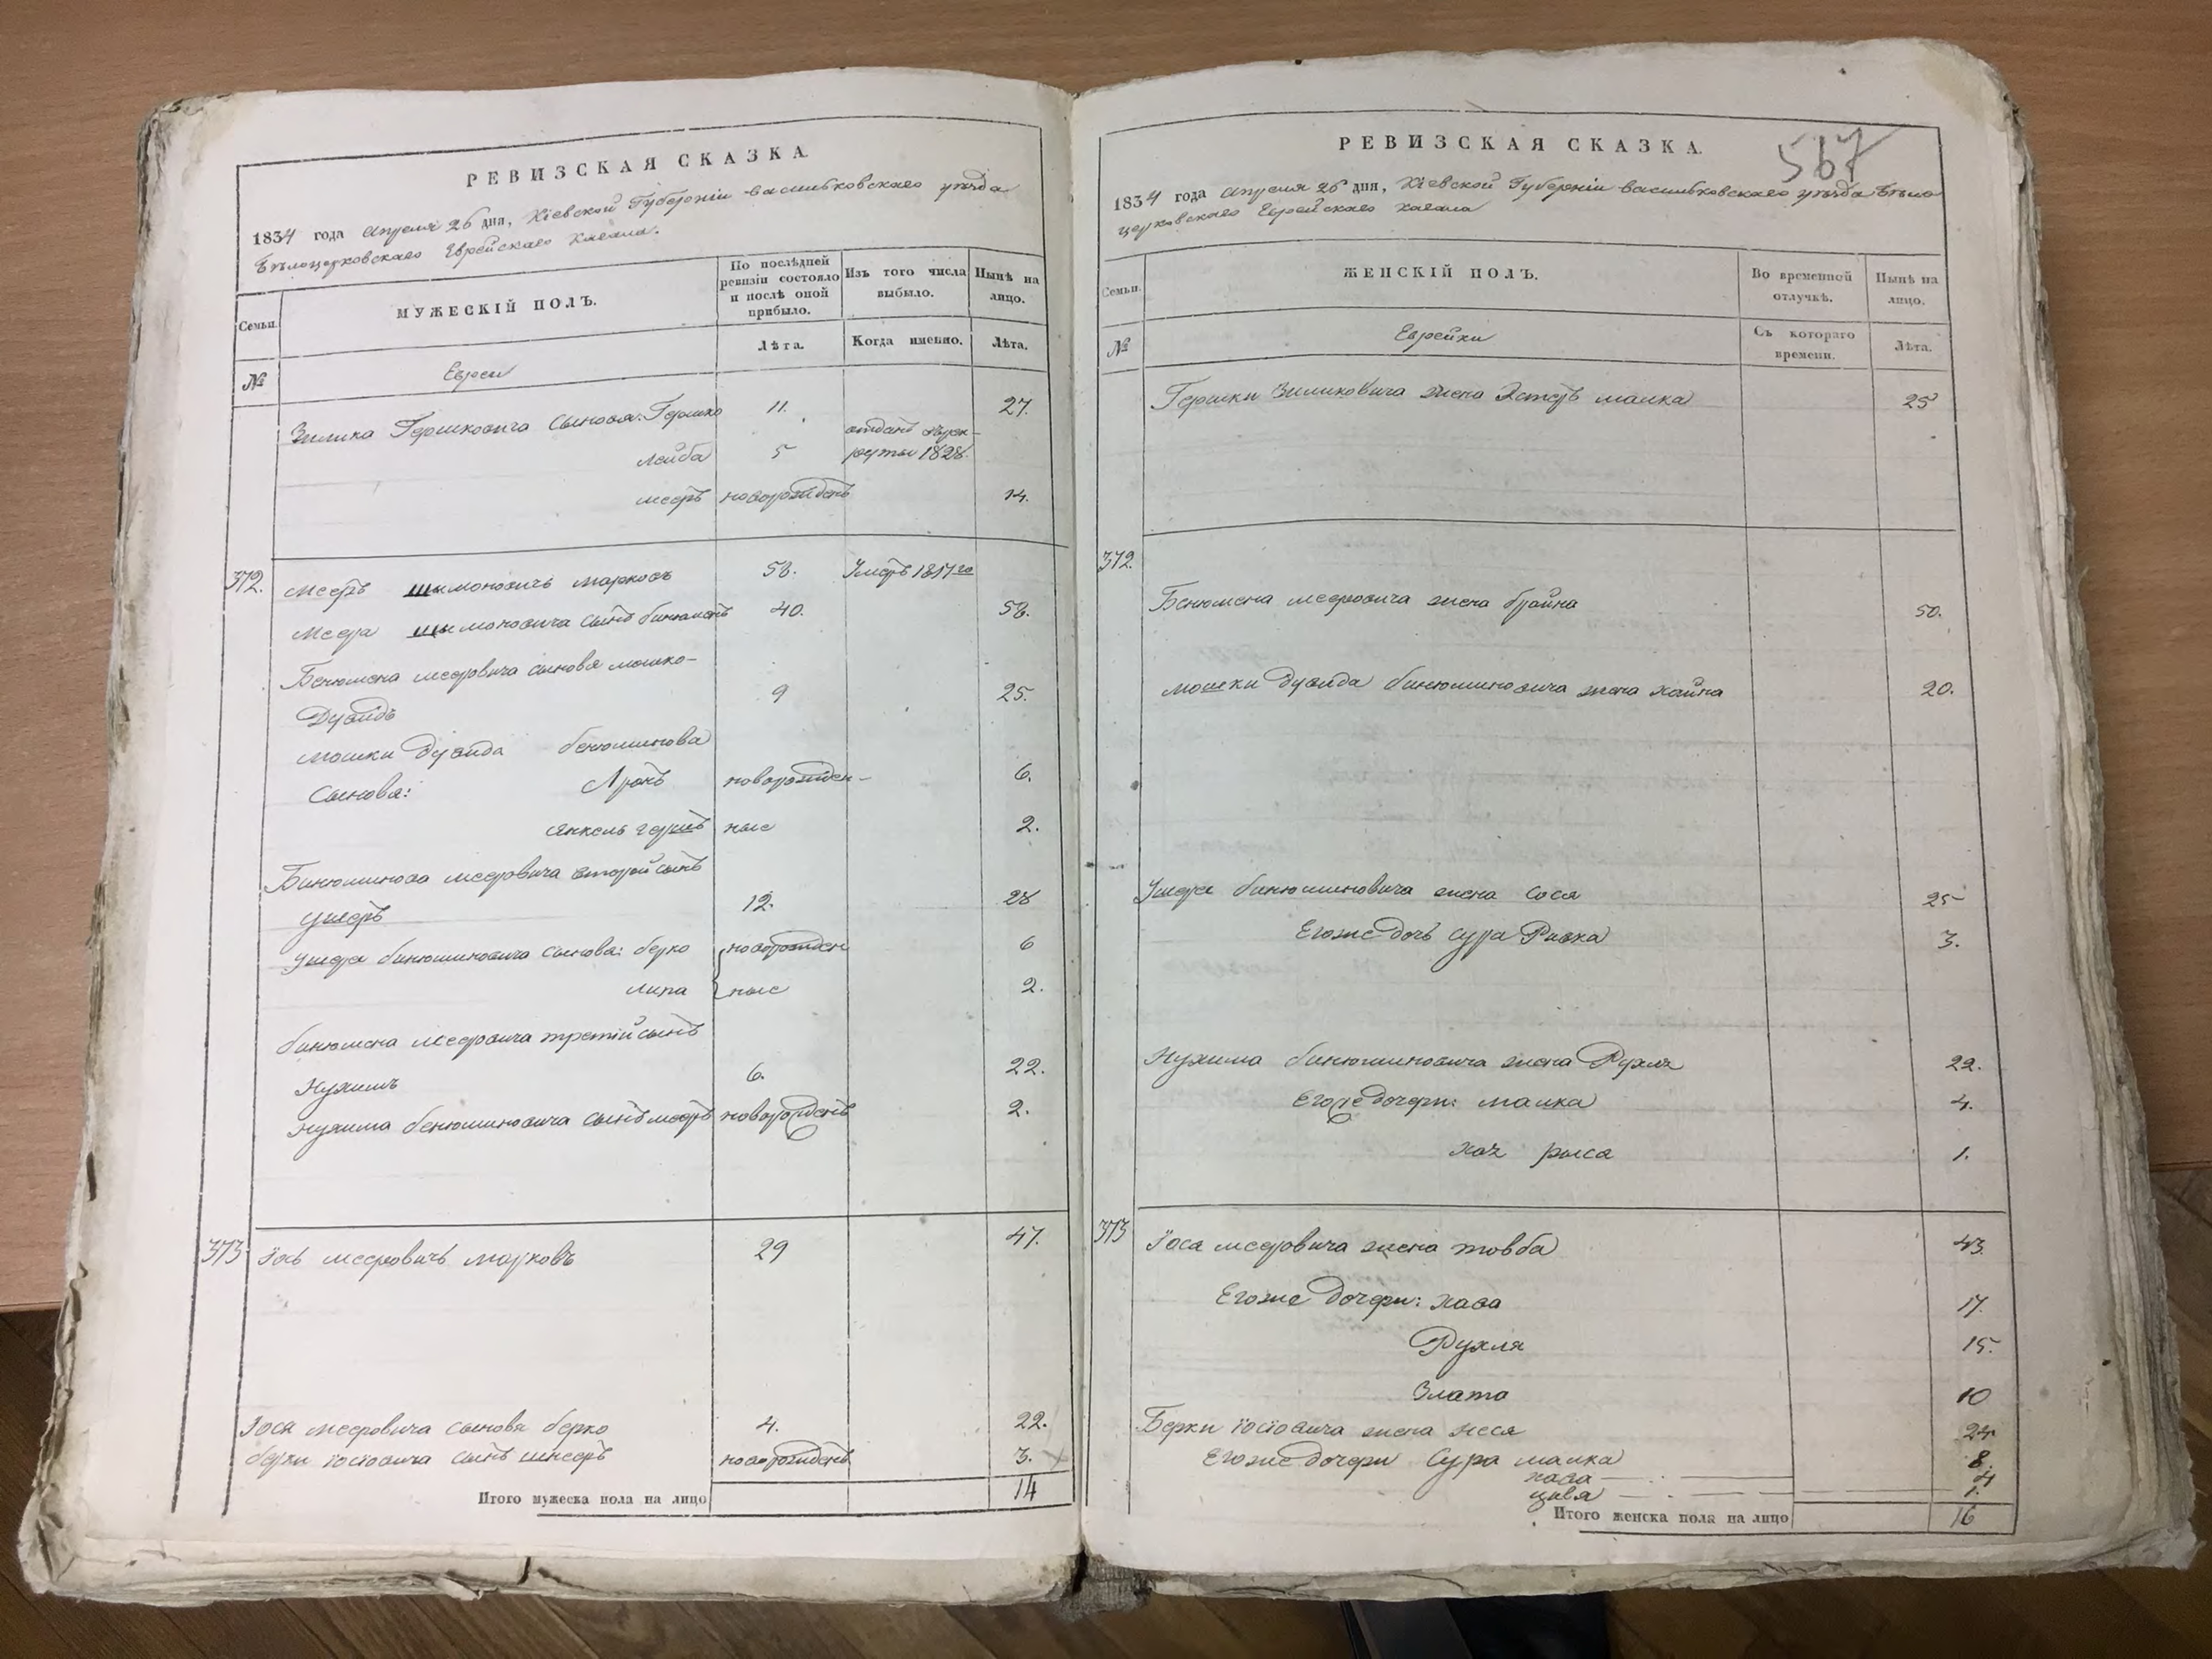 РЕВИЗСКАЯ СКАЗКА.
1834 года апреля 26 дня, Кіевской Губерніи васильковскаго уѣзда
Бѣлоцерковскаго Еврейскаго кагала.
Семьи.
МУЖЕСКІЙ ПОЛЪ.
По послѣдней
ревизіи состояло
и послѣ оной
прибыло.
Изъ того числа
выбыло.
Нынѣ на
лицо.
Лѣта.
Когда именно.
Лѣта.
№
Евреи
Зилика Гершковича сыновя: Гершко 11. 27.
лейба 5 отданъ въ рек-
руты 1828.
мееръ новорожденъ 14.
372. Мееръ шымоновичъ марковъ 58. Умеръ 1817го
Меера шымоновича сынъ бинюменъ 40. 58.
Бенюмена мееровича сыновя мошко-
Дувидъ 9 25.
мошки Дувида бенюминова
сыновя: Аронъ новорожден- 6.
янкель гершъ ные 2.
Бинюминова мееровича второй сынъ
ушеръ 12. 28
ушера бинюминовича сыновя: берко новорожден 6
липа ные 2.
бинюмена мееровича третій сынъ
Нухимъ 6. 22.
Нухима бенюминовича сынъ мееръ новорожденъ 2.
373 Іось мееровичъ марковъ 29 47.
Іося мееровича сыновя берко 4. 22.
берки іосіовича сынъ шмееръ новорожденъ 3.
Итого мужеска пола на лицо 14
РЕВИЗСКАЯ СКАЗКА.
567
1834 года апреля 26 дня, Кіевской Губерніи васильковскаго уѣзда Бѣло
церковскаго Еврейскаго кагала
Семьи.
ЖЕНСКІЙ ПОЛЪ.
Во временной
отлучкѣ.
Нынѣ на
лицо.
№
Еврейки
Съ котораго
времени.
Лѣта.
Гершки Зиликовича жена Эстеръ малка 25
372.
Бенюмена мееровича жена брайна 50.
мошки Дувида бинюминовича жена хайка 20.
Ушера бинюминовича жена сося 25
Егоже дочь сура Ривка 3.
Нухима бинюминовича жена Рухля 22.
Егоже дочери: малка 4.
хая рыса 1.
373 Іося мееровича жена товба 43.
Егоже дочери: хава 17.
Рухля 15.
Злата 10
Берки іосіовича жена неся 24
Егоже дочери сура малка 8.
хава 4
цивя 1.
Итого женска пола на лицо 16